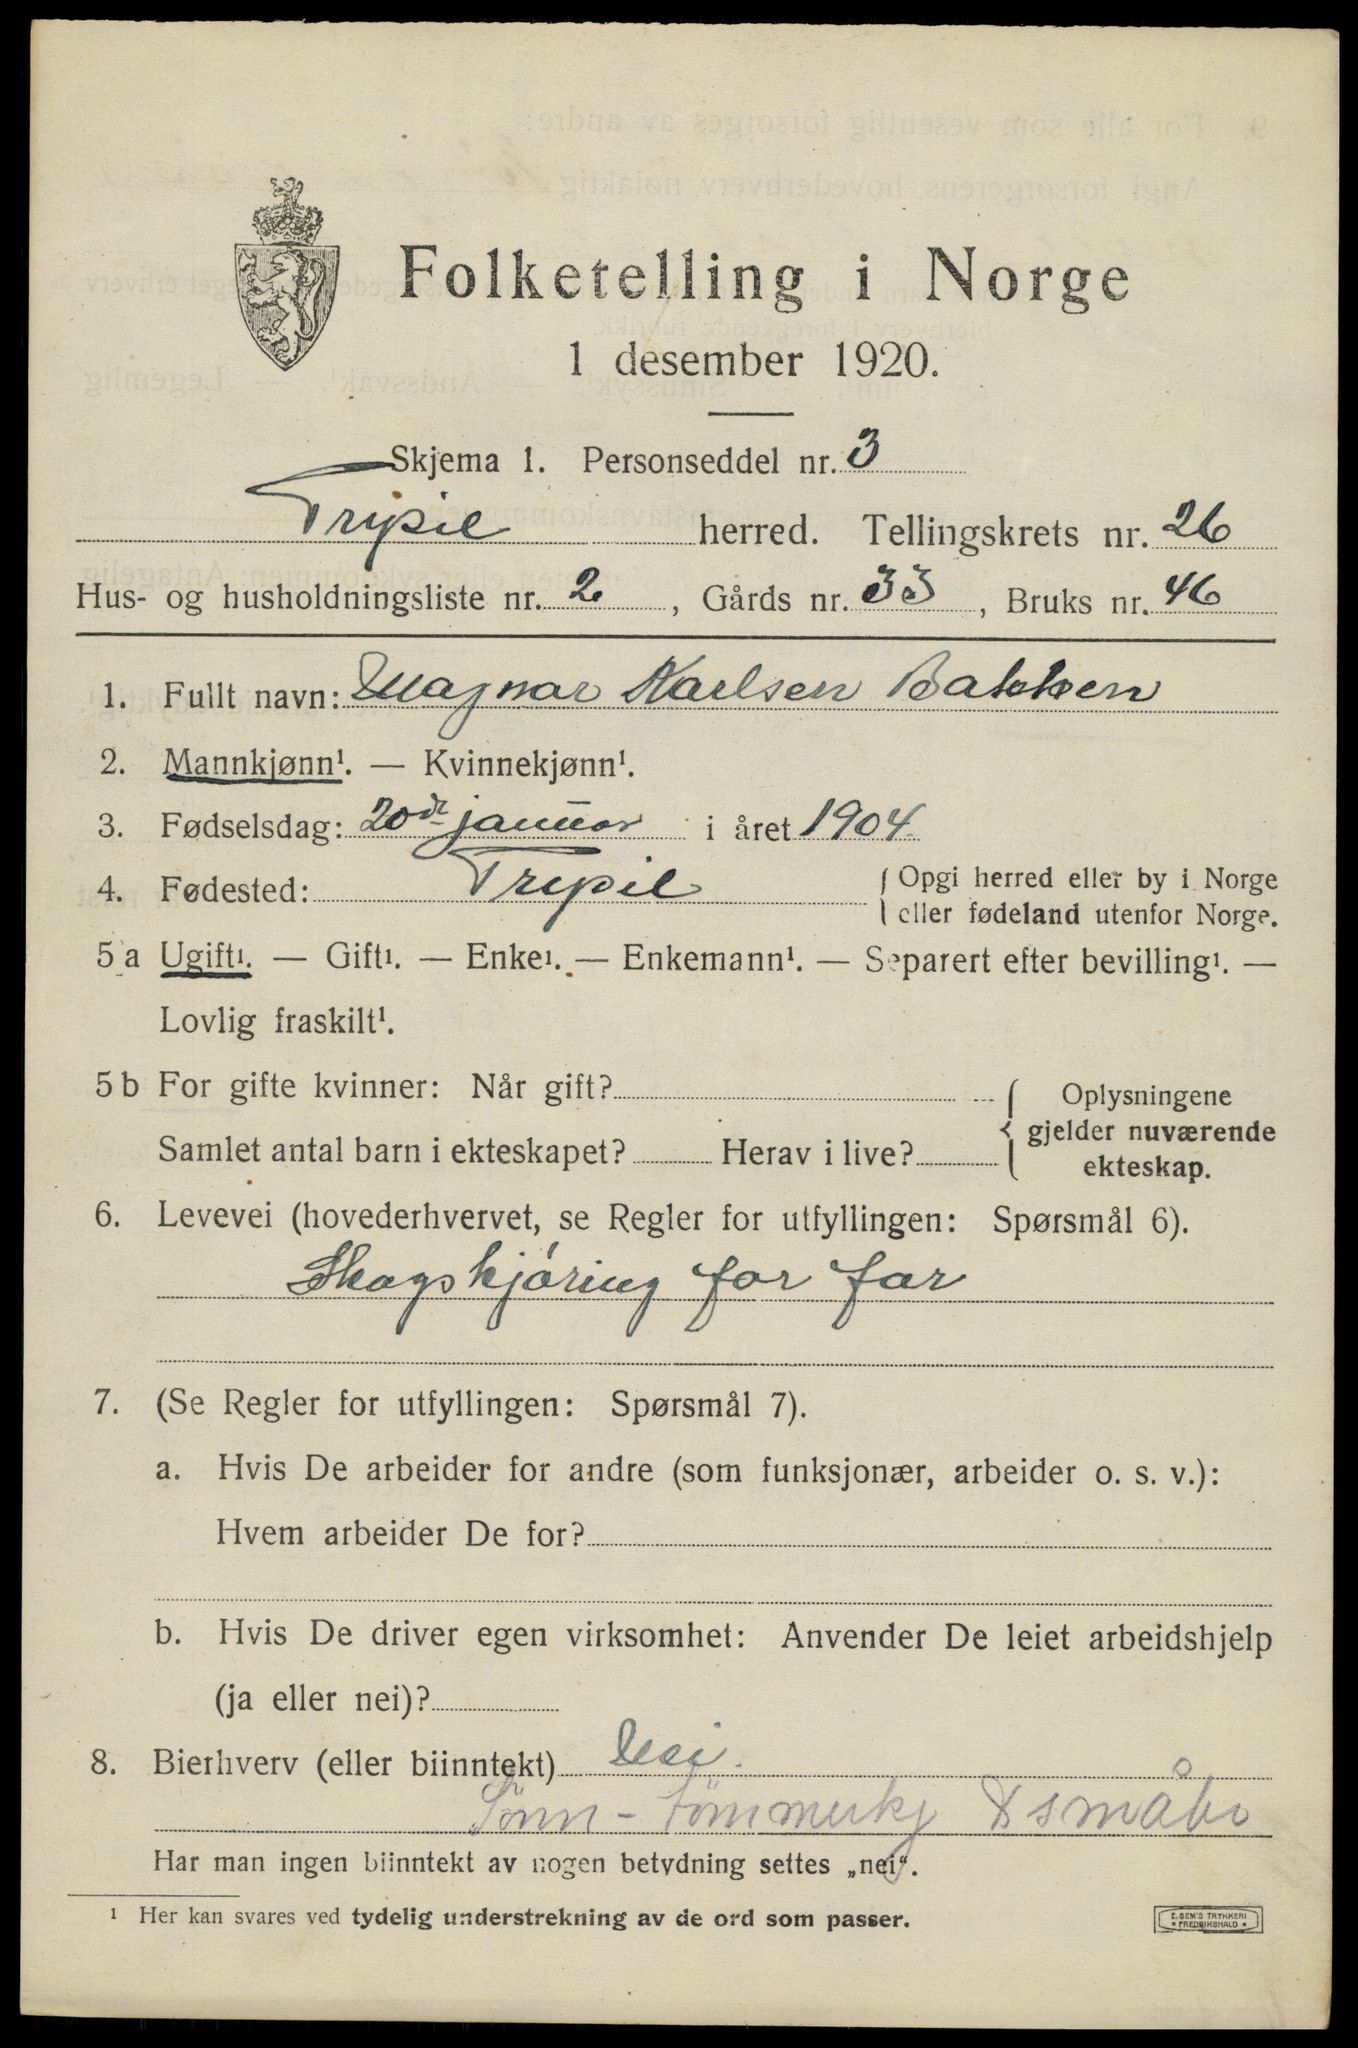 Folketelling i Norge
1 desember 1920.
Skjema 1. Personseddel nr. 3
Trysil herred. Tellingskrets nr. 26
Hus- og husholdningsliste nr. 2, Gårds nr. 33, Bruks nr. 46
1. Fullt navn: Magnar Karlsen Bakken
2. Mannkjønn¹. — Kvinnekjønn¹.
3. Fødselsdag: 20de januar i året 1904
4. Fødested: Trysil { Opgi herred eller by i Norge
eller fødeland utenfor Norge.
5 a Ugift¹. — Gift¹. — Enke¹. — Enkemann¹. — Separert efter bevilling¹. —
Lovlig fraskilt¹.
5 b For gifte kvinner: Når gift? { Oplysningene
gjelder nuværende
Samlet antal barn i ekteskapet? Herav i live?
ekteskap.
6. Levevei (hovederhvervet, se Regler for utfyllingen: Spørsmål 6).
Skogskjöring for far
7. (Se Regler for utfyllingen: Spørsmål 7).
a. Hvis De arbeider for andre (som funksjonær, arbeider o. s. v.):
Hvem arbeider De for?
b. Hvis De driver egen virksomhet: Anvender De leiet arbeidshjelp
(ja eller nei)?
8. Bierhverv (eller biinntekt) Nei.
Sönn - tömmerkj & småbr
Har man ingen biinntekt av nogen betydning settes „nei“.
¹ Her kan svares ved tydelig understrekning av de ord som passer.
E. SEM'S TRYKKERI
• FREDRIKSHALD •